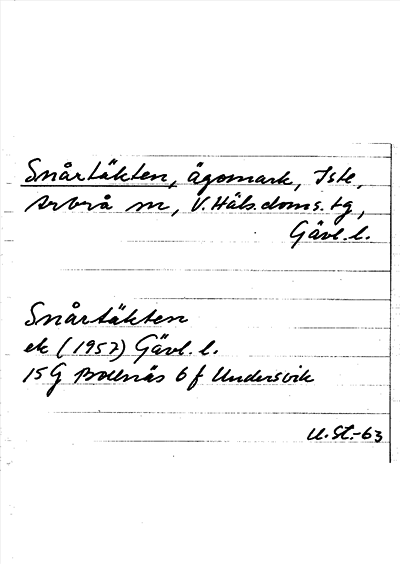 Snårtäkten, ägomark, Iste,
Arbrå sn, V. Häls. doms. tg,
Gävl. l.
Snårtäkten
ek (1957) Gävl. l.
15G Bollnäs 6 f Undersvik
U.St.-63